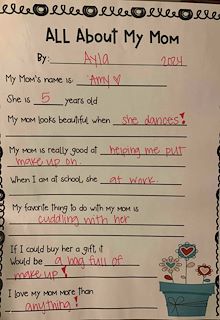 ALL About My Mom
By: Ayla 2024
My Mom's name is: Amy
She is 5 years old
My mom looks beautiful when she dances!
My mom is really good at helping me put
make up on.
When I am at school, she at work.
My favorite thing to do with my mom is
cuddling with her
If I could buy her a gift, it
Would be a bag full of
make up!
I love my mom more than
anything!